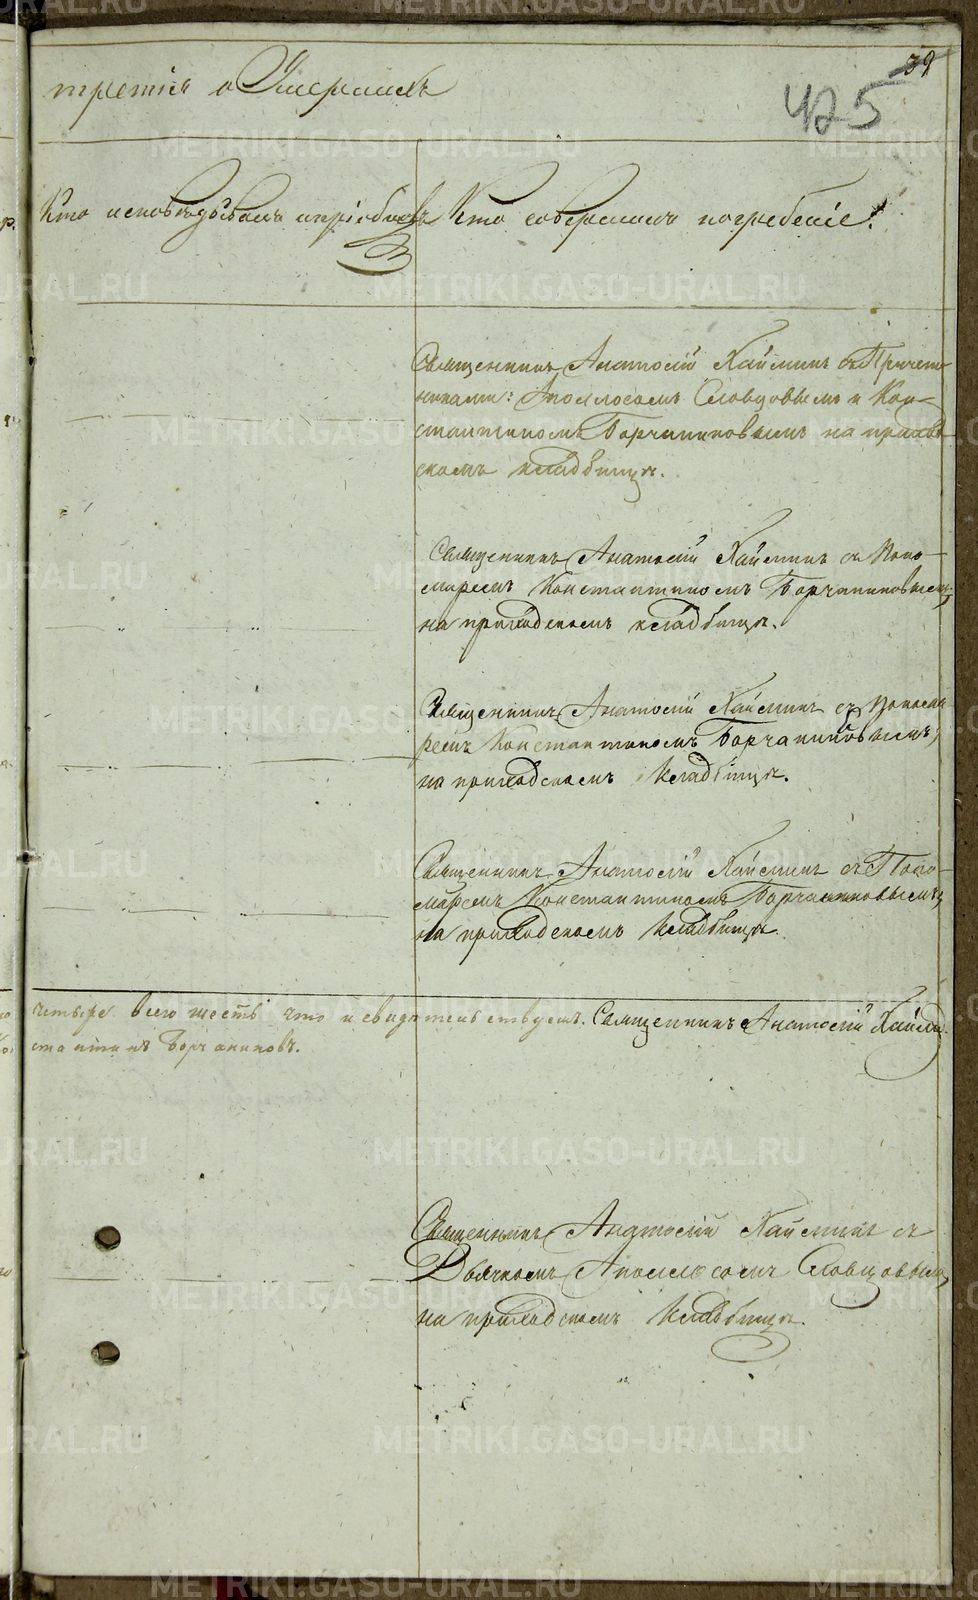 третія о Умершихъ
39
425
Кто исповѣдывалъ и пріобщалъ
Кто совершалъ погребеніе.
Священникъ Анатолій Хайминъ съ Причет-
никами: Аполлосомъ Словцовымъ и Кон-
стантиномъ Борчаниновымъ на приход-
скомъ кладбищѣ.
Священникъ Анатолій Хайминъ съ Поно-
маремъ Константиномъ Борчаниновымъ,
на приходскомъ кладбищѣ.
Священникъ Анатолій Хайминъ съ Понома-
ремъ Константиномъ Борчаниновымъ,
на приходскомъ кладбищѣ.
Священникъ Анатолій Хайминъ съ Поно-
маремъ Константиномъ Борчаниновымъ,
на приходскомъ кладбищѣ.
четыре всего шесть что и свидѣтельствуемъ. Священникъ Анатолій Хайми
стантинъ Борчаниновъ.
Священникъ Анатолій Хайминъ съ
Дьячкомъ Аполлосомъ Словцовымъ,
на приходскомъ кладбищѣ.
METRIKI.GASO-URAL.RU